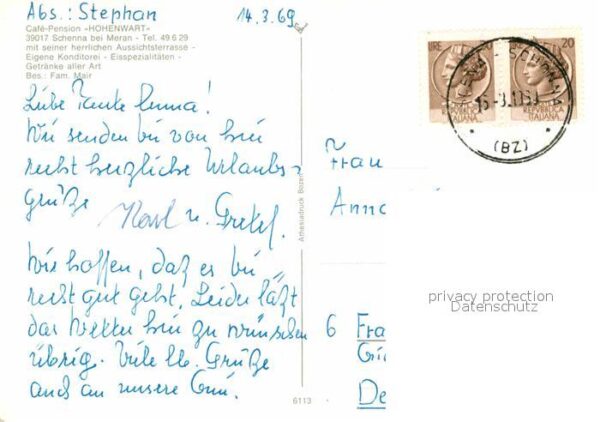 Abs.: Stephan
14.3.69
Café-Pension «HOHENWART»
39017 Schenna bei Meran - Tel. 49 6 29
mit seiner herrlichen Aussichtsterrasse -
Eigene Konditorei - Eisspezialitäten -
Getränke aller Art
Bes.: Fam. Mair
Liebe Tante Anna!
Wir senden dir von hier
recht herzliche Urlaubs-
grüße
Karl u. Gretel.
Wir hoffen, daß es dir
recht gut geht, Leider läßt
das Wetter hier zu wünschen
übrig. Viele lb. Grüße
auch an unsere
Athesiadruck Bozen
6113
LIRE
20
REPVBBLICA
ITALIANA
REPVBBLICA
ITALIANA
(BZ)
Frau
Anna
privacy protection
Datenschutz
6 Fra
De